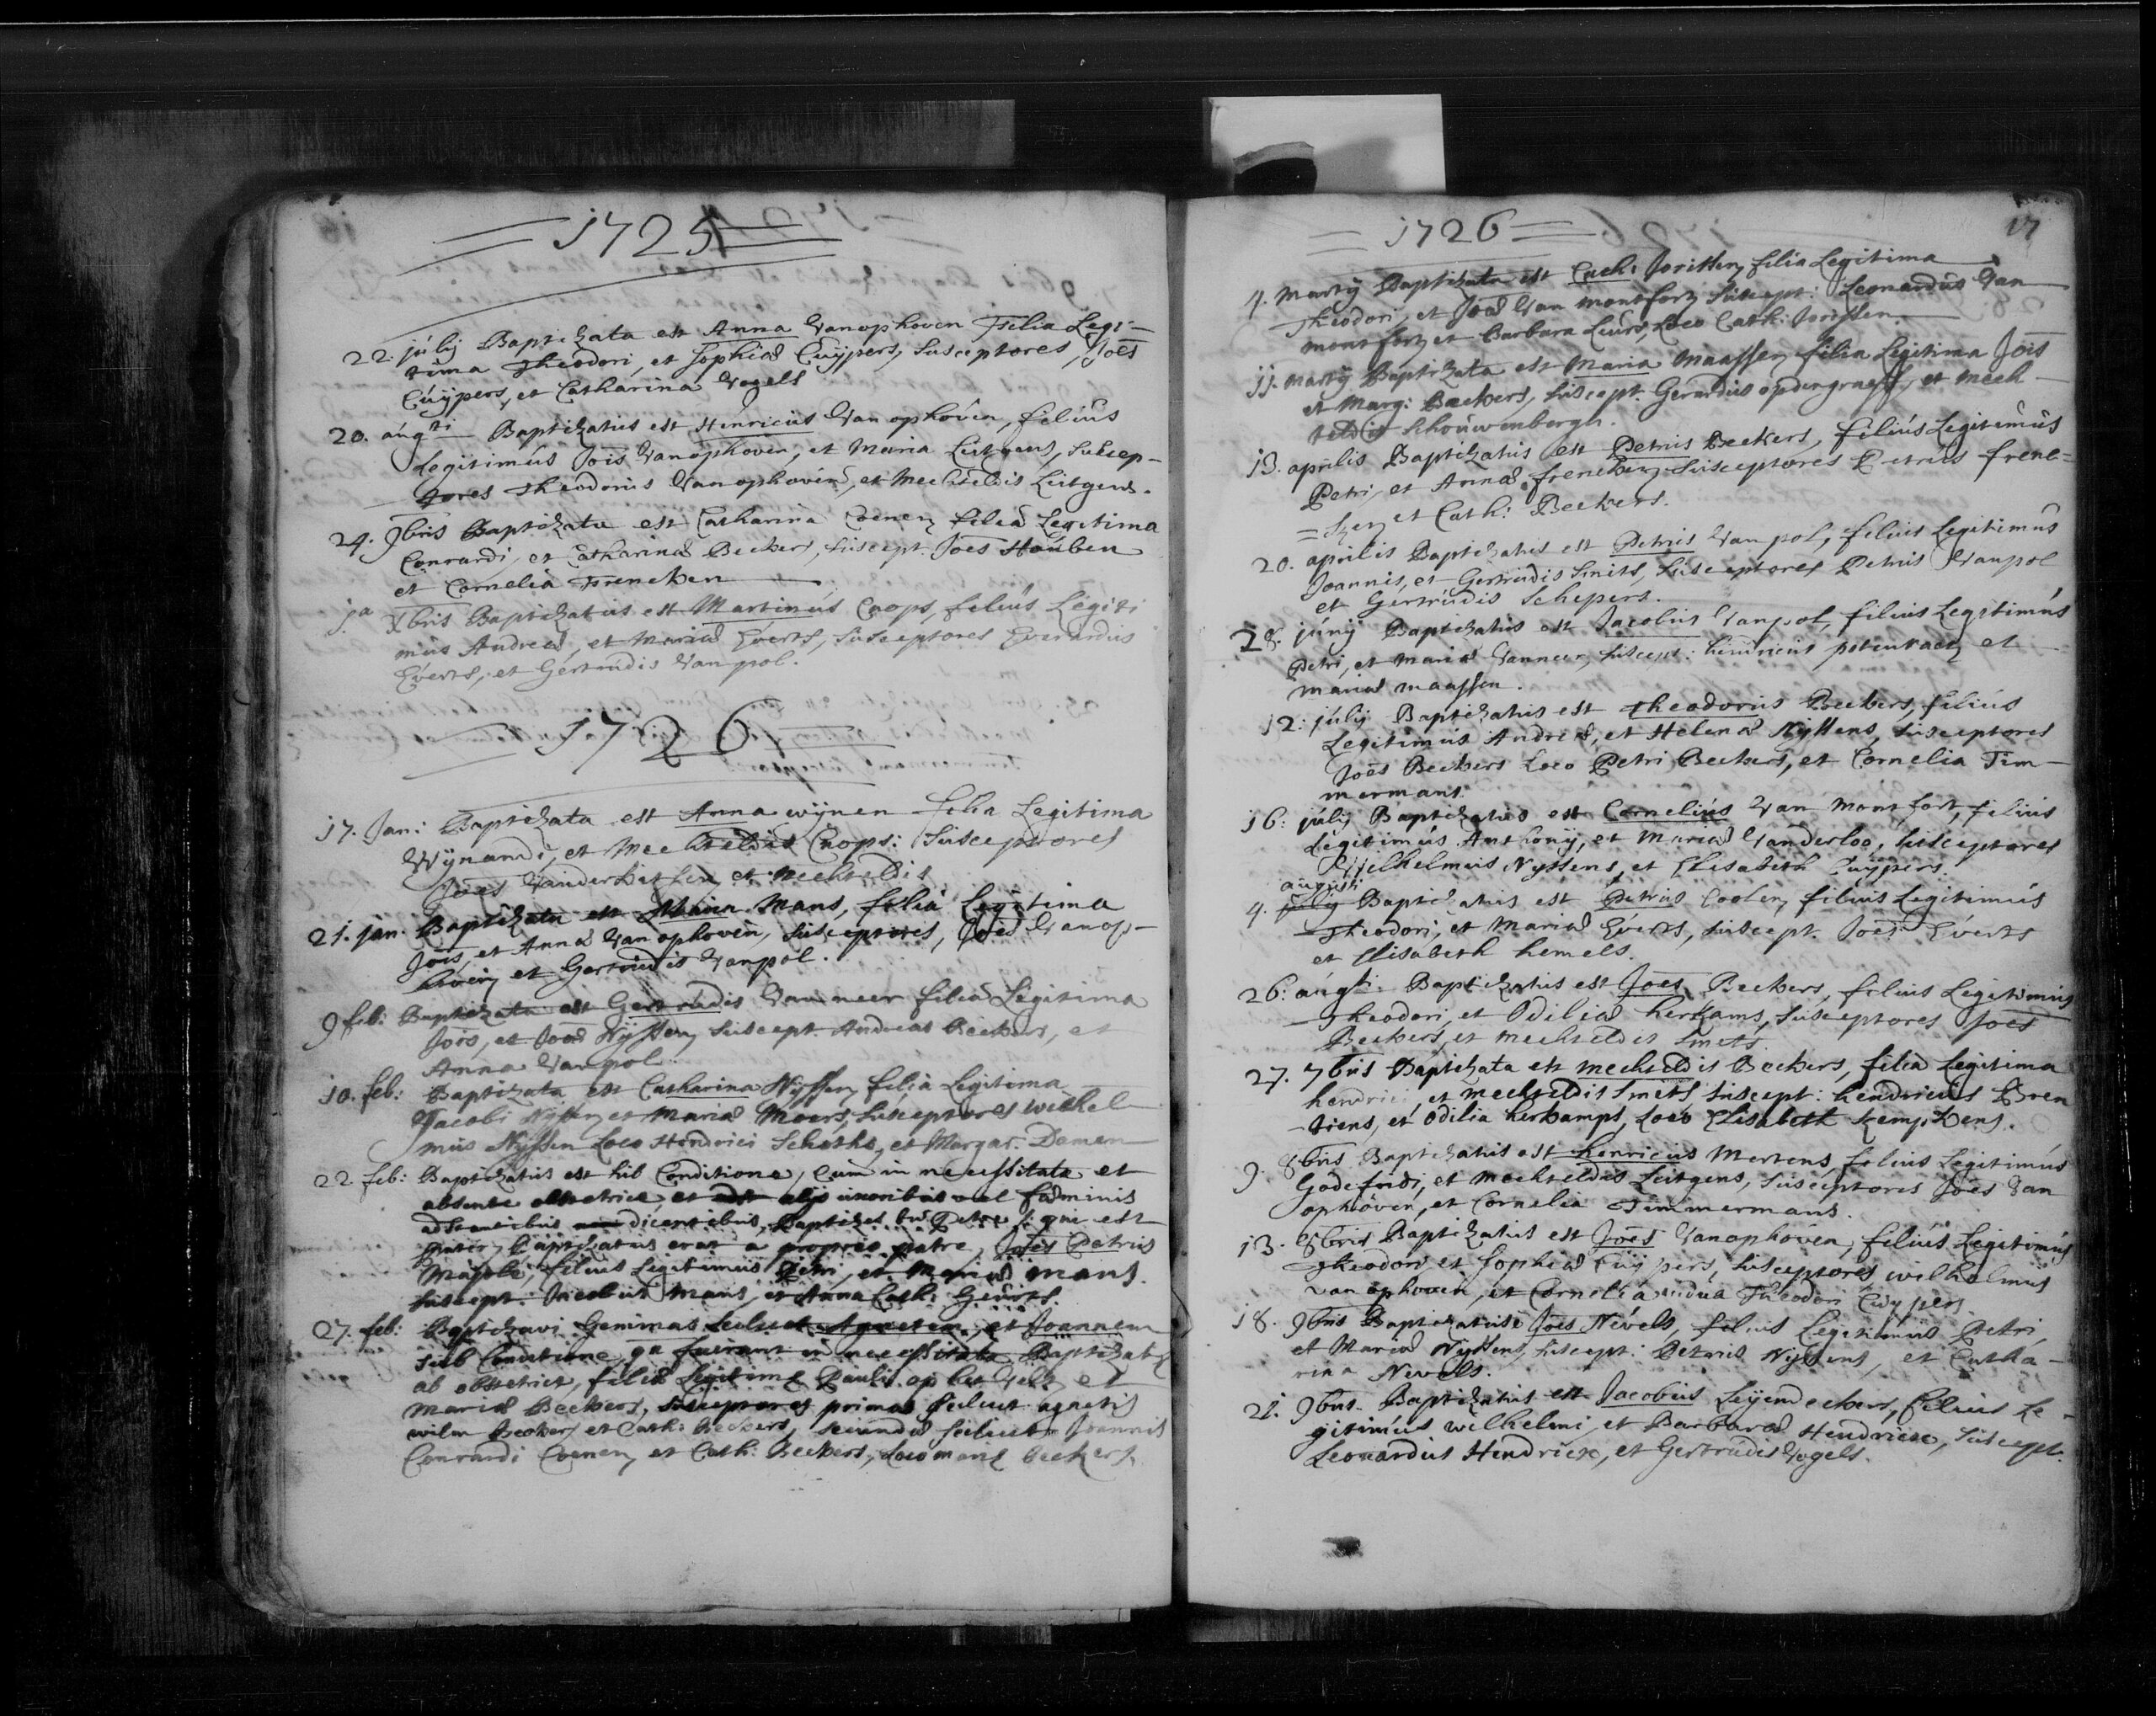 1725
22. júlij Baptizata est Anna Vanophoven Filia Legi-
tima Theodori, et Sophiæ Cuÿpers, Susceptores, Joes
Cúÿpers, et Catharina Vogels
20. augti Baptizatus est Henricus Van ophoven, filius
Legitimús Jois Vanophoven, et Maria Lutgens, Suscep-
tores Theodorus Van ophoven, et Mechteldis Lutgens.
24. 9bris Baptizata est Catharina Coenen filia Legitima
Conrardi, et Catharinæ Beckers, suscept. Joes Houben
et Cornelia Frencken
1a Xbris Baptizatus est Martinús Cnops, filiús Legiti
mus Andreæ, et Mariæ Everts, Susceptores Everardus
Everts, et Gertrudis Vanpol.
1726
17. Jan: Baptizata est Anna wÿnen filia Legitima
Wÿnandi, et Mechteldis Cnops: Susceptores
Joes et Mechteldis
21. jan. Baptizata est Maria Mans, filia Legitima
Jois, et Annæ Van ophoven, Susceptores, Joes Vanop-
hoven et Gertrudis Vanpol.
9 feb: Baptizata est Gertrudis Van neer filia Legitima
Jois, et Joæ Nijssen, Suscept. Andreas Beckers, et
Anna Vanpol
10. feb: Baptizata est Catharina Nijssen filia Legitima
Jacobi Nijssen et Mariæ Moers, Susceptores wilhel
mus Nijssen Loco Hendrici Scheths, et Margar. Damen
22 feb: Baptizatus est sub Conditione, cum in necessitate et
absente obstetrice, et alijs uxoribus vel fæminis
adstantibus dicentibus, qui est
pater, Baptizatus erat a proprio patre, Joes Petrus
filius Legitimus Petri, et Mariæ Mans.
suscept: Jacobus Mans, et Anna Cath: Geurts.
27. feb: Baptizavi Geminas Scilicet Agnetem, et Joannem
sub Conditione, qa fuerant in necessitate Baptizati
ab obstetrice, filiæ Legitimæ Pauli op het Velt, et
Mariæ Beckers, Susceptores primæ scilicet agnetis
wilm Beckers et Cath: Beckers, secundæ scilicet Joannis
Conrardi Coenen, et Cath: Beckers, Loco mariæ Beckers.
1726
17
4. Martij Baptizata est Cath: Joristen filia Legitima
Theodori, et Joæ Van montfort, Suscept: Leonardus Van
montfort, et Barbara Luurs, Loco Cath: Joristen.
11. Martij Baptizata est Maria Maassen filia Legitima Jois
et Marg: Beckers, Suscept. Gerardus opdengraeff, et Mech-
teldis Schouwenbergh.
13. aprilis Baptizatus est Petrus Beckers, filiús Legitimús
Petri, et Annæ frencken, Susceptores Petrus frenc=
=ken et Cath: Beckers.
20. aprilis Baptizatus est Petrus Van pol, filius Legitimús
Joannis, et Gertrudis Smits, Susceptores Petrus Vanpol
et Gertrudis Schepers.
28. júnij Baptizatus est Jacobus Vanpol, filius Legitimús
Petri, et Mariæ Vanneer, Suscept: henricus et
mariæ maassen.
12. júlij Baptizatus est Theodorus Beckers, filiús
Legitimus Andreæ, et Helenæ Nijssens, Susceptores
Joes Beckers Loco Petri Beckers, et Cornelia Tim-
mermans.
16: júlij Baptizatus est Cornelius Van Montfort, filius
Legitimús Anthonij, et Mariæ Vanderloo, Susceptores
Wilhelmus Nijssens, et Elisabeth Cuÿpers.
augusti
4. júlij Baptizatus est Petrus Coolen filius Legitimús
Theodori, et Mariæ Everts, suscept. Joes Everts
et Elisabeth hemels.
26: augti: Baptizatus est Joes Beckers, filius Legitimús
Theodori, et Odiliæ herkams, Susceptores Joes
Beckers, et Mechteldis Smets.
27. 7bris Baptizata est Mechteldis Beckers, filia Legitima
hendrici, et Mechteldis Smets Suscept: hendricus Bren
tiens, et Odilia herkamps, Loco Elisabeth kempkens.
9. 8bris Baptizatus est henricus Mertens filius Legitimús
Godefridi, et Mechteldis Lutgens, Susceptores Joes Van
ophoven, et Cornelia Timmermans.
13. 8bris Baptizatus est Joes Vanophoven, filiús Legitimús
Theodori et Sophiæ Cuÿpers, Susceptores wilhelmus
Van ophoven, et Cornelia vidua Theodori Cuÿpers.
18. 9bris Baptizatus e Joes Nevels, filius Legitimus Petri,
et Mariæ Nijssens, suscept: Petrus Nijssens, et Catha-
rina Nevels.
21. 9bris Baptizatus est Jacobus Leijendeckers, filius Le-
gitimus wilhelmi, et Barbaræ Hendricx, suscept.
Leonardus Hendricx, et Gertrudis Vogels.